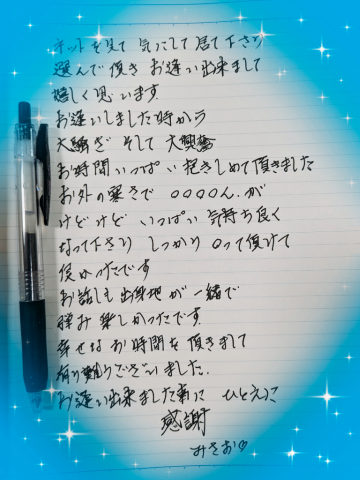 ネットを見て 気にして居て下さり
選んで頂き お逢い出来まして
嬉しく思います
お逢いしました時から
大騒ぎ そして 大興奮
お時間いっぱい 抱きしめて頂きました
お外の寒さで 〇〇〇〇ん.が
けどけど いっぱい 気持ち良く
なって下さり しっかり 〇って頂けて
良かったです
お話しも 出身地が 一緒で
弾み 楽しかったです.
幸せな お時間を 頂きまして
有り難うございました.
お逢い出来ました事に ひとえに
感謝
みさお♡